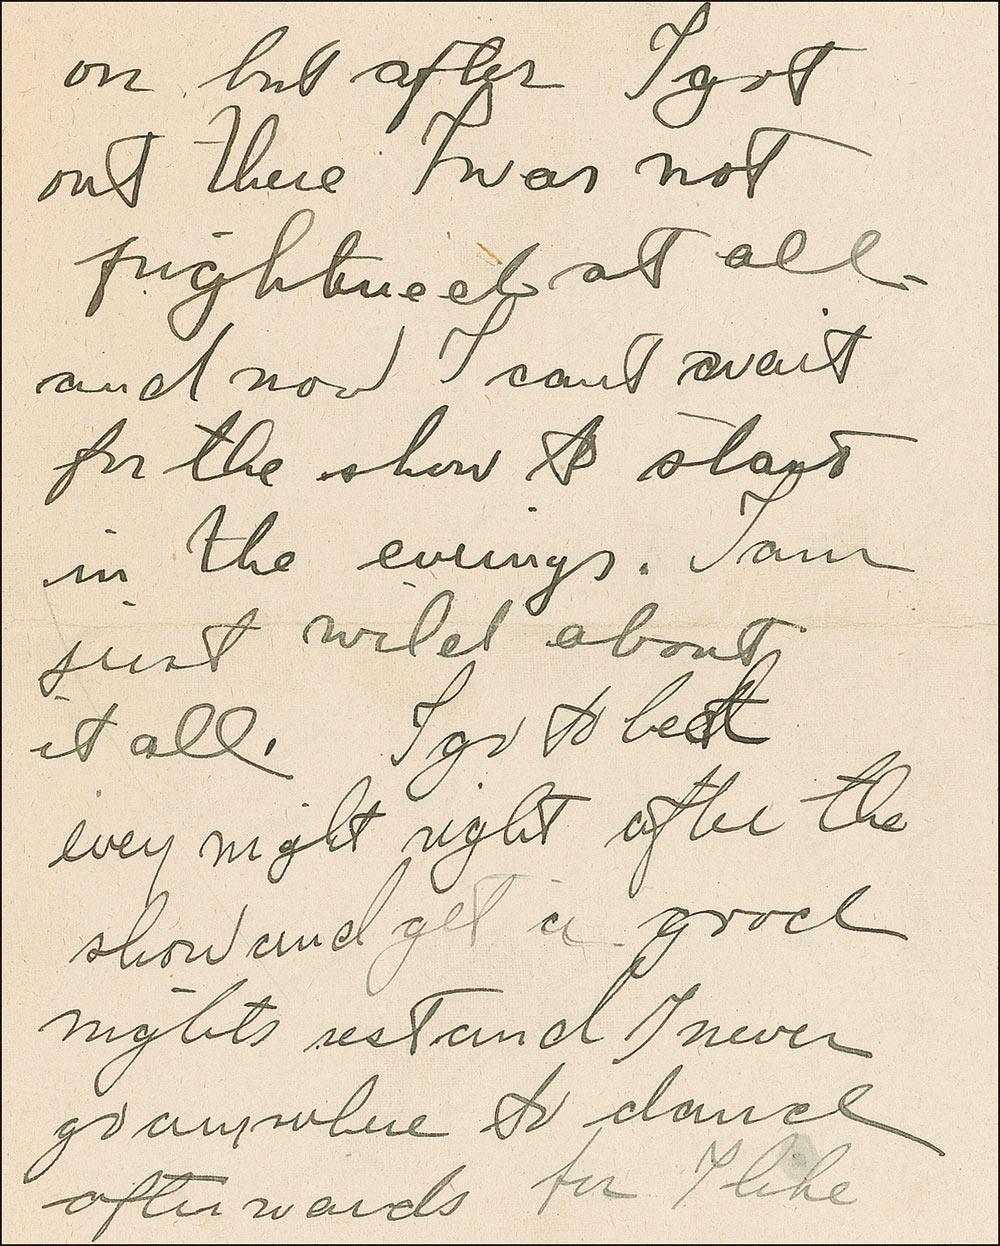 on but after I got
out there I was not
frightened at all
and now I cant wait
for the show to start
in the evenings. I am
just wild about
it all. I go to bed
every night right after the
show and get a good
nights rest and I never
go anywhere to dance
afterwards for I like